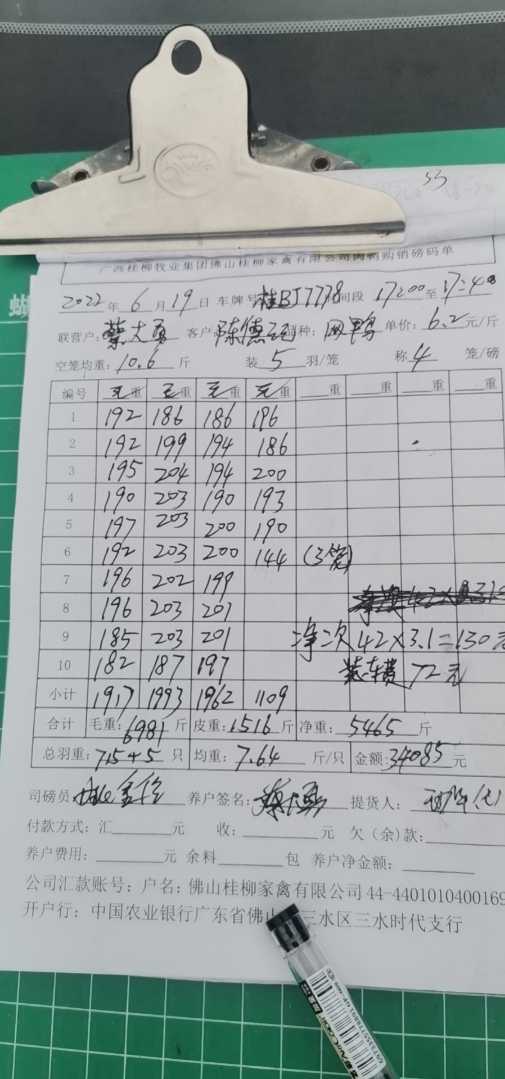 53
广西桂柳牧业集团佛山桂柳家禽有限公司肉鸭购销磅码单
2022年 6月 19日 车牌号 桂BJ7778 时间段 17:00 至 17:40
联营户: 客户 种: 鸭 单价: 6.2元/斤
空笼均重: 10.6 斤 装 5 羽/笼 称 4 笼/磅
编号 毛重 毛重 毛重 毛重 重 重 重 重
1 192 186 186 196
2 192 199 194 186
3 195 204 194 200
4 190 203 190 193
5 197 203 200 190
6 192 203 200 144 (3笼)
7 196 202 199
8 196 203 201
9 185 203 201 净次 42×3.1=130元
10 182 187 197 装车费 72元
小计 1917 1993 1962 1109
合计 毛重: 6981 斤 皮重: 1516 斤 净重: 5465 斤
总羽重: 715+5 只 均重: 7.64 斤/只 金额: 34085 元
司磅员 养户签名: 提货人:
付款方式: 汇 元 收: 元 欠(余)款:
养户费用: 元 余料 包 养户净金额:
公司汇款账号: 户名: 佛山桂柳家禽有限公司 44-4401010400169
开户行: 中国农业银行广东省佛山 三水区三水时代支行